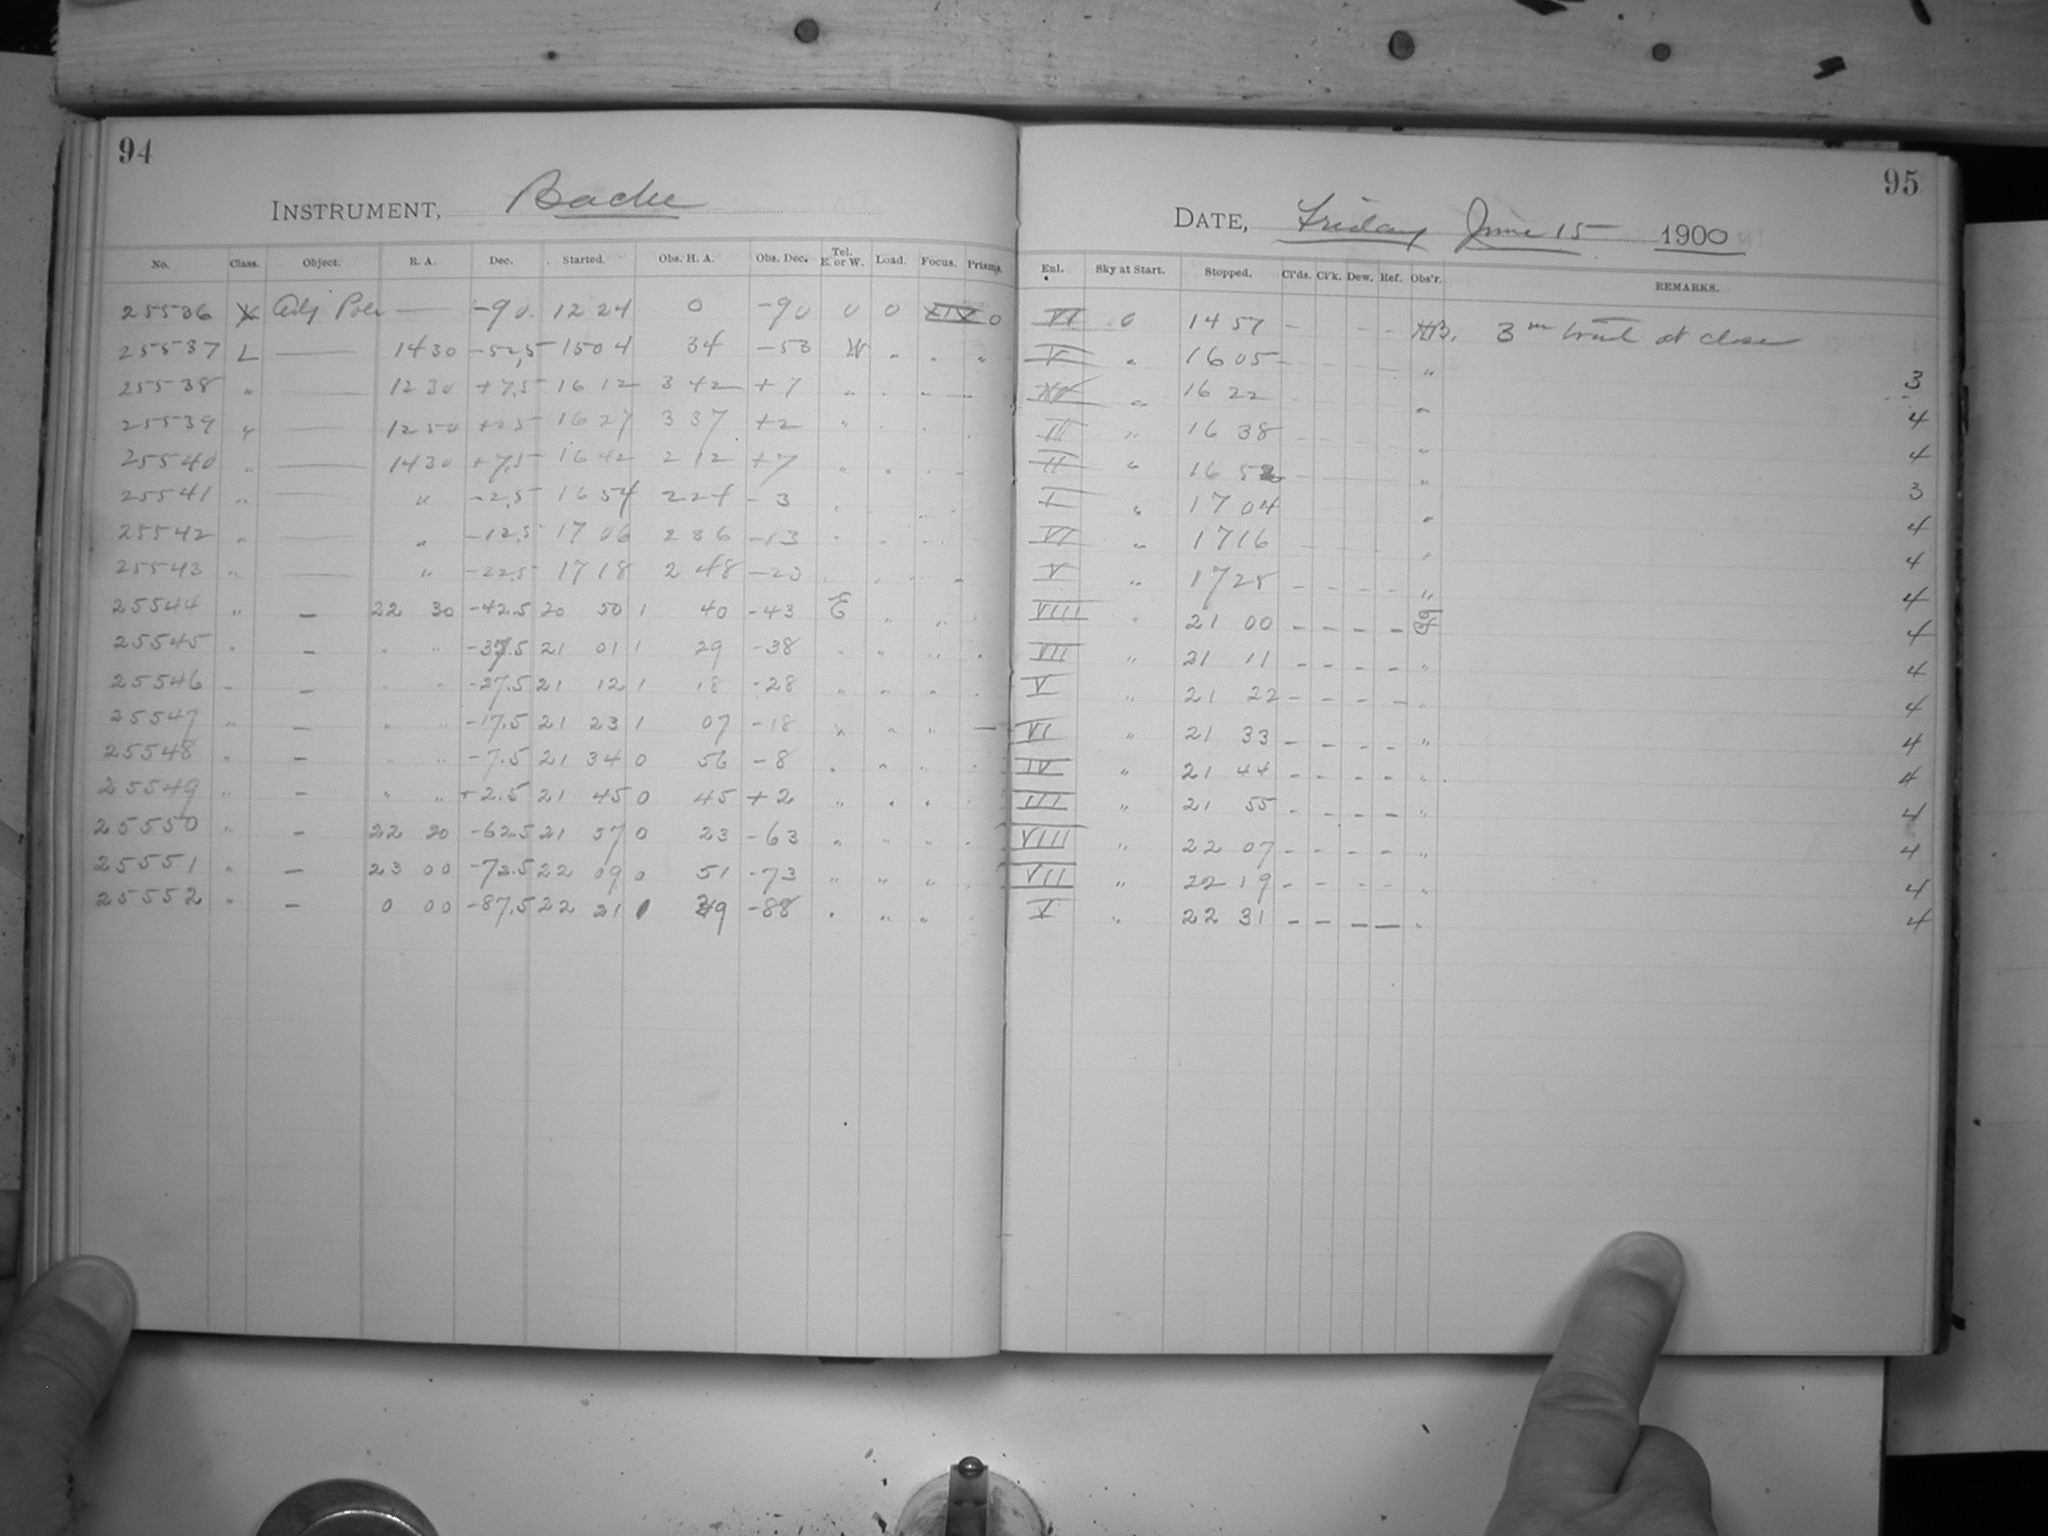 94
INSTRUMENT, Bache
No. Class. Object. R. A. Dec. Started. Obs. H. A. Obs. Dec. Tel. E. or W. Load. Focus. Prisms.
25536 X Adj Pole — -90. 12 24 0 -90 0 0 XIX 0
25537 L — 14 30 -52,5 15 04 34 -53 W " " "
25538 " — 12 30 +7,5 16 12 3 42 +7 " " " "
25539 " — 12 50 +2,5 16 27 3 37 +2 " " " "
25540 " — 14 30 +7,5 16 42 2 12 +7 " " " "
25541 " — " -2,5 16 54 2 24 -3 " " " "
25542 " — " -12,5 17 06 2 36 -13 " " " "
25543 " — " -22,5 17 18 2 48 -23 " " " "
25544 " — 22 30 -42.5 20 50 1 40 -43 E " " "
25545 " — " " -37.5 21 01 1 29 -38 " " " "
25546 " — " " -27.5 21 12 1 18 -28 " " " "
25547 " — " " -17.5 21 23 1 07 -18 " " " —
25548 " — " " -7.5 21 34 0 56 -8 " " " "
25549 " — " " +2.5 21 45 0 45 +2 " " " "
25550 " — 22 20 -62.5 21 57 0 23 -63 " " " "
25551 " — 23 00 -72.5 22 09 0 51 -73 " " " "
25552 " — 0 00 -87.5 22 21 1 39 -88 " " "
95
DATE, Friday June 15 1900
Enl. Sky at Start. Stopped. Cl'ds. Cl'k. Dew. Ref. Obs'r. REMARKS.
VI 0 14 57 — — — 3m trail at close
V " 16 05 — "
" 16 22 " 3
III " 16 38 — — — — " 4
II " 16 52 — — — — " 4
I " 17 04 " 3
VI " 17 16 — — — — " 4
V " 17 28 — — — — " 4
VIII " 21 00 — — — — 4
VII " 21 11 — — — — " 4
V " 21 22 — — — — " 4
VI " 21 33 — — — — " 4
IV " 21 44 — — — — " 4
III " 21 55 — — — — " 4
VIII " 22 07 — — — — " 4
VII " 22 19 — — — — " 4
V " 22 31 — — — — " 4